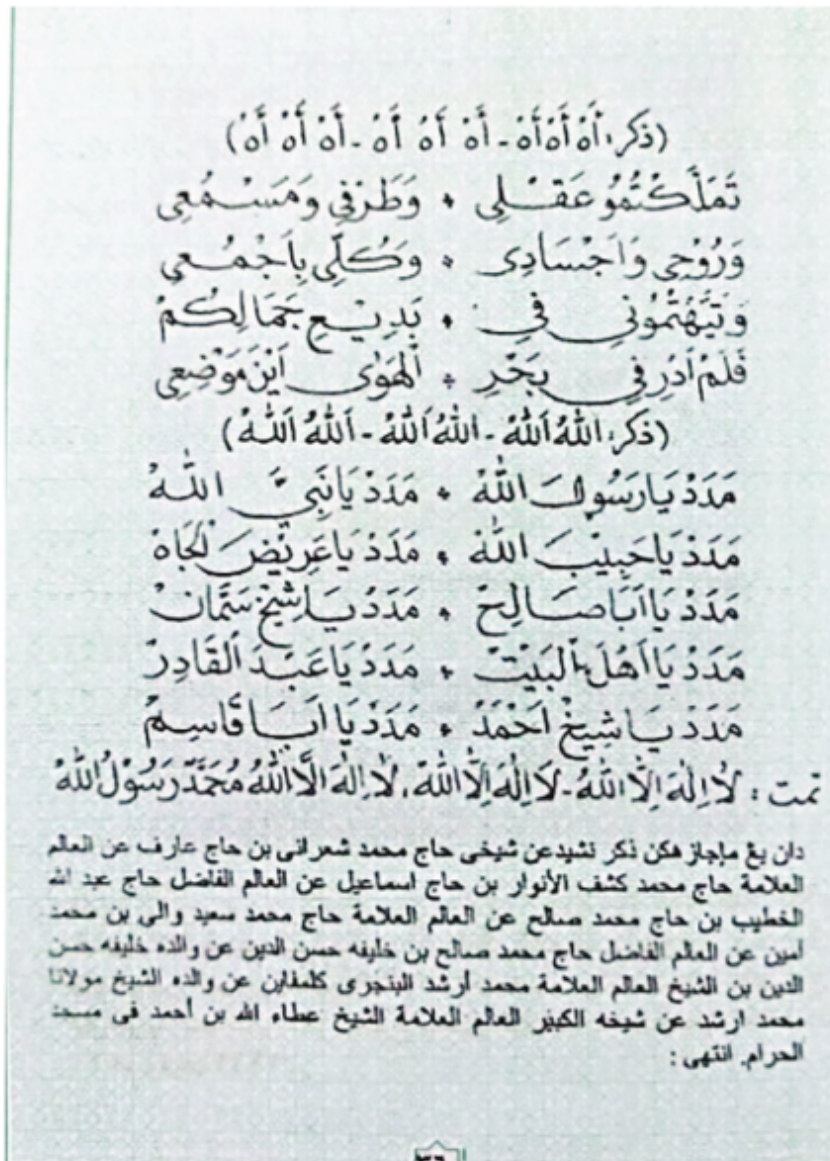 (ذكر: أَهْ أَهْ أَهْ - أَهْ أَهُ أَهُ - أَهْ أَهْ أَهْ)
تَمَلَّكْتُمُو عَقْلِى * وَطَرْفِي وَمَسْمُعِى
وَرُوْحِى وَاَجْسَادِى * وَكُلِّى بِاَجْمُعِى
وَتَيَّهْتُمُونِي فِي * بَدِيْعِ جَمَالِكُمْ
فَلَمْ اَدْرِ فِي بَحْرِ * الْهَوٰى اَيْنَ مَوْضِعِى
(ذكر: اللهُ اَللهُ - اللهُ اَللهُ - اَللهُ اَللهُ)
مَدَدْ يَا رَسُولَ اللهْ * مَدَدْ يَا نَبِيَّ اللهْ
مَدَدْ يَا حَبِيْبَ اللهْ * مَدَدْ يَا عَرِيْضَ الْجَاهْ
مَدَدْ يَا اَبَا صَالِحْ * مَدَدْ يَا شِيْخْ سَمَّانْ
مَدَدْ يَا اَهْلَ الْبَيْتْ * مَدَدْ يَا عَبْدَ الْقَادِرْ
مَدَدْ يَا شِيْخْ اَحْمَدْ * مَدَدْ يَا اَبَا قَاسِمْ
تمت : لَا اِلٰهَ اِلَّا اللهُ - لَا اِلٰهَ اِلَّا اللهُ، لَا اِلٰهَ اِلَّا اللهُ مُحَمَّدْ رَسُوْلُ اللهْ
دان يڠ مإجازهكن ذكر نشيد عن شيخى حاج محمد شعرانى بن حاج عارف عن العالم
العلامة حاج محمد كشف الأنوار بن حاج اسماعيل عن العالم الفاضل حاج عبد الله
الخطيب بن حاج محمد صالح عن العالم العلامة حاج محمد سعيد والى بن محمد
أمين عن العالم الفاضل حاج محمد صالح بن خليفه حسن الدين عن والده خليفه حسن
الدين بن الشيخ العالم العلامة محمد أرشد البنجرى كلمفاين عن والده الشيخ مولانا
محمد ارشد عن شيخه الكبير العالم العلامة الشيخ عطاء الله بن أحمد فى مسجد
الحرام. انتهى :